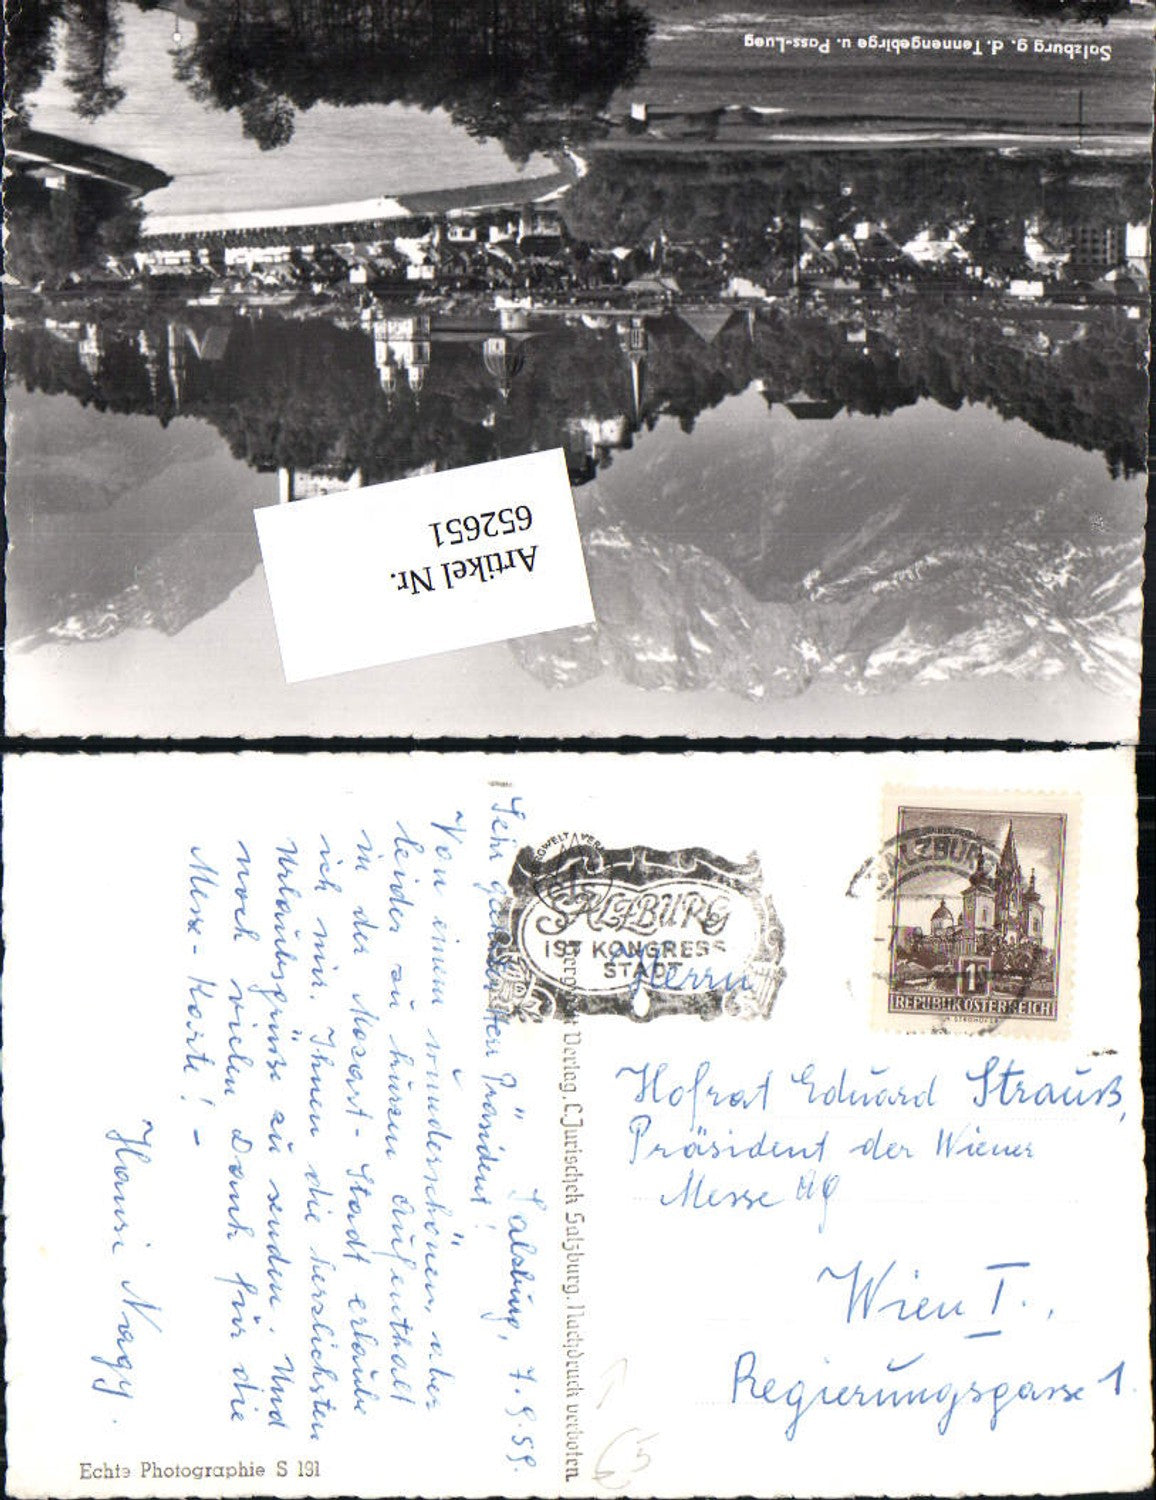 Salzburg g. d. Tennengebirge u. Pass-Lueg
Artikel Nr.
652651
Salzburg, 7.9.59.
Sehr geehrter Herr Präsident!
Von einem wunderschönen, aber
leider zu kurzen Aufenthalt
in der Mozart-Stadt erlaube
ich mir, Ihnen die herzlichsten
Urlaubsgrüße zu senden. Und
noch vielen Dank für die
Messe-Karte! -
Hansi Nagy.
Echte Photographie S 191
Bergwelt Verlag, C. Jurischek Salzburg. Nachdruck verboten
BERGWELT VERL
SALZBURG
IST KONGRESS
STADT
SALZBURG
1S
REPUBLIK ÖSTERREICH
Herrn
Hofrat Eduard Strauß,
Präsident der Wiener
Messe AG
Wien I.,
Regierungsgasse 1.
€5